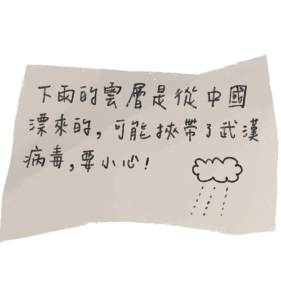 下雨的雲層是從中國
漂來的,可能挾帶了武漢
病毒,要小心!